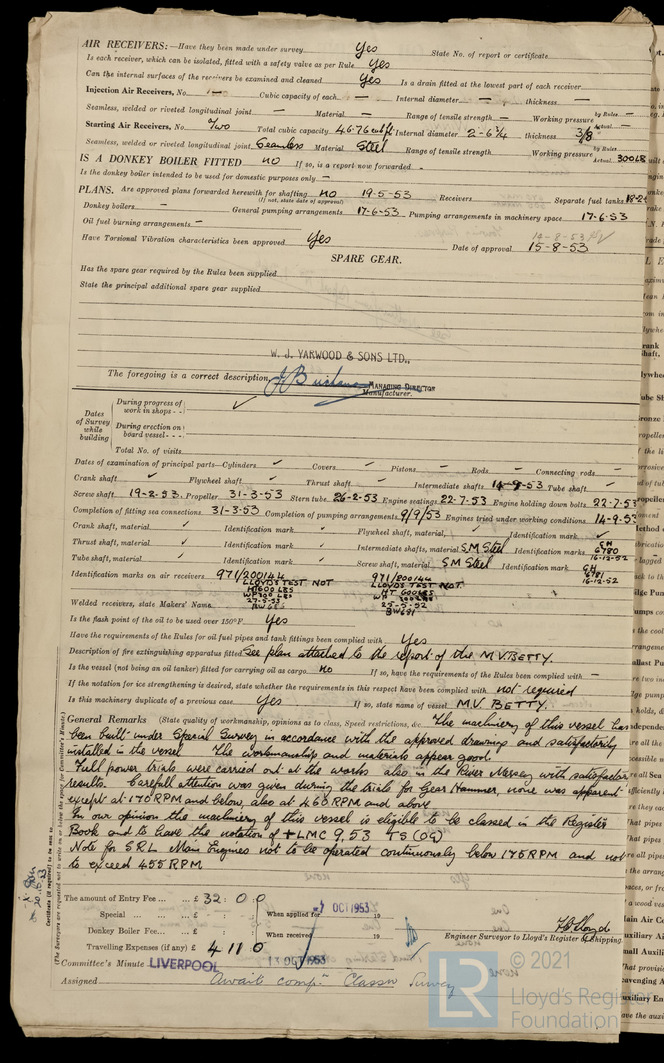 AIR RECEIVERS:—Have they been made under survey Yes State No. of report or certificate
Is each receiver, which can be isolated, fitted with a safety valve as per Rule Yes
Can the internal surfaces of the receivers be examined and cleaned Yes Is a drain fitted at the lowest part of each receiver
Injection Air Receivers, No. — Cubic capacity of each — Internal diameter — thickness —
Seamless, welded or riveted longitudinal joint — Material — Range of tensile strength — Working pressure by Rules — Actual —
Starting Air Receivers, No. two Total cubic capacity 46.76 cub ft Internal diameter 2'-6¼ thickness 3/8
Seamless, welded or riveted longitudinal joint Seamless Material Steel Range of tensile strength Working pressure by Rules Actual 300 LB
IS A DONKEY BOILER FITTED NO If so, is a report now forwarded -
Is the donkey boiler intended to be used for domestic purposes only —
PLANS. Are approved plans forwarded herewith for shafting NO 19-5-53 Receivers Separate fuel tanks
(If not, state date of approval)
Donkey boilers — General pumping arrangements 17-6-53 Pumping arrangements in machinery space 17-6-53
Oil fuel burning arrangements —
14-8-53
Have Torsional Vibration characteristics been approved Yes Date of approval 15-8-53
SPARE GEAR.
Has the spare gear required by the Rules been supplied
State the principal additional spare gear supplied
W. J. YARWOOD & SONS LTD.,
The foregoing is a correct description,
MANAGING DIRECTOR
Manufacturer.
Dates of Survey while building
During progress of work in shops - - ✓
During erection on board vessel - - -
Total No. of visits
Dates of examination of principal parts—Cylinders ✓ Covers ✓ Pistons - Rods ✓ Connecting rods -
Crank shaft ✓ Flywheel shaft ✓ Thrust shaft ✓ Intermediate shafts 14-9-53 Tube shaft ✓
Screw shaft 19-2-53. Propeller 31-3-53 Stern tube 26-2-53 Engine seatings 22-7-53 Engine holding down bolts 22-7-53
Completion of fitting sea connections 31-3-53 Completion of pumping arrangements 9/9/53 Engines tried under working conditions 14-9-53
Crank shaft, material ✓ Identification mark ✓ Flywheel shaft, material ✓ Identification mark ✓
Thrust shaft, material ✓ Identification mark ✓ Intermediate shafts, material S.M Steel Identification marks GH 6780 16-12-52
Tube shaft, material ✓ Identification mark ✓ Screw shaft, material S.M Steel Identification mark GH 6781 16-12-52
Identification marks on air receivers 971/200144 971/800144
LLOYD'S TEST NOT LLOYD'S TEST NOT
HT600 LBS HT 600LBS
WP300 LBS WP 300LBS
27-5-53 25-5-52
BW685 BW681
Welded receivers, state Makers' Name
Is the flash point of the oil to be used over 150°F. Yes
Have the requirements of the Rules for oil fuel pipes and tank fittings been complied with Yes
Description of fire extinguishing apparatus fitted See plan attached to the report of the M.V. BETTY.
Is the vessel (not being an oil tanker) fitted for carrying oil as cargo NO If so, have the requirements of the Rules been complied with —
If the notation for ice strengthening is desired, state whether the requirements in this respect have been complied with not required
Is this machinery duplicate of a previous case Yes If so, state name of vessel M.V. BETTY.
General Remarks (State quality of workmanship, opinions as to class, Speed restrictions, &c. The machinery of this vessel has
been built under Special Survey in accordance with the approved drawings and satisfactorily
installed in the vessel. The workmanship and materials appear good.
Full power trials were carried out at the works also in the River Mersey with satisfactory
results. Carefull attention was given during the trials for Gear Hammer, none was apparent
except at 170 RPM and below, also at 460 RPM and above
In our opinion the machinery of this vessel is eligible to be classed in the Register
Book and to have the notation of +LMC 9.53 TS (OG)
Note for S.R.L Main Engines not to be operated continuously below 175 RPM and not
to exceed 455 RPM
The amount of Entry Fee ... £ 32 : 0 : 0
Special ... £ : : When applied for 7 OCT 1953 19
Donkey Boiler Fee ... £ : : When received 19
Travelling Expenses (if any) £ 4 11 0
Engineer Surveyor to Lloyd's Register of Shipping.
Committee's Minute LIVERPOOL 13 OCT 1953
Assigned Await compn. Classn Survey
(The Surveyors are requested not to write on or below the space for Committee's Minute.)
Certificate (if required) to be sent to
© 2021
LR
Lloyd's Register
Foundation